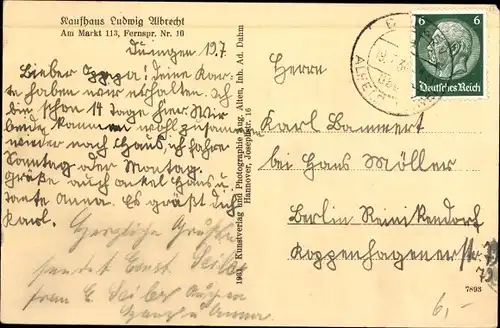 Kaufhaus Ludwig Albrecht
Am Markt 113, Fernspr. Nr. 10
Duingen 19.7.
Lieber Oppa! deine Kar-
te haben wir erhalten. Ich
bin schon 14 Tage hier. Wir
beide kommen wohl zusammen
wieder nach Haus, ich fahre
Sonntag oder Montag.
Grüße auch onkel Hans u.
tante Anna. Es grüßt dich
Karl.
Herzliche Grüße
sendet Ernst Seiler
frau E. Seiler
u Anna.
Kunstverlag und Photographie Aug. Alten, Inh. Ad. Dahm
Hannover, Josephstr. 16
6 6
Deutsches Reich
Herrn
Karl Bammert
bei Hans Möller
Berlin Reinikendorf
Koppenhagenerstr.
79
7893
6,-